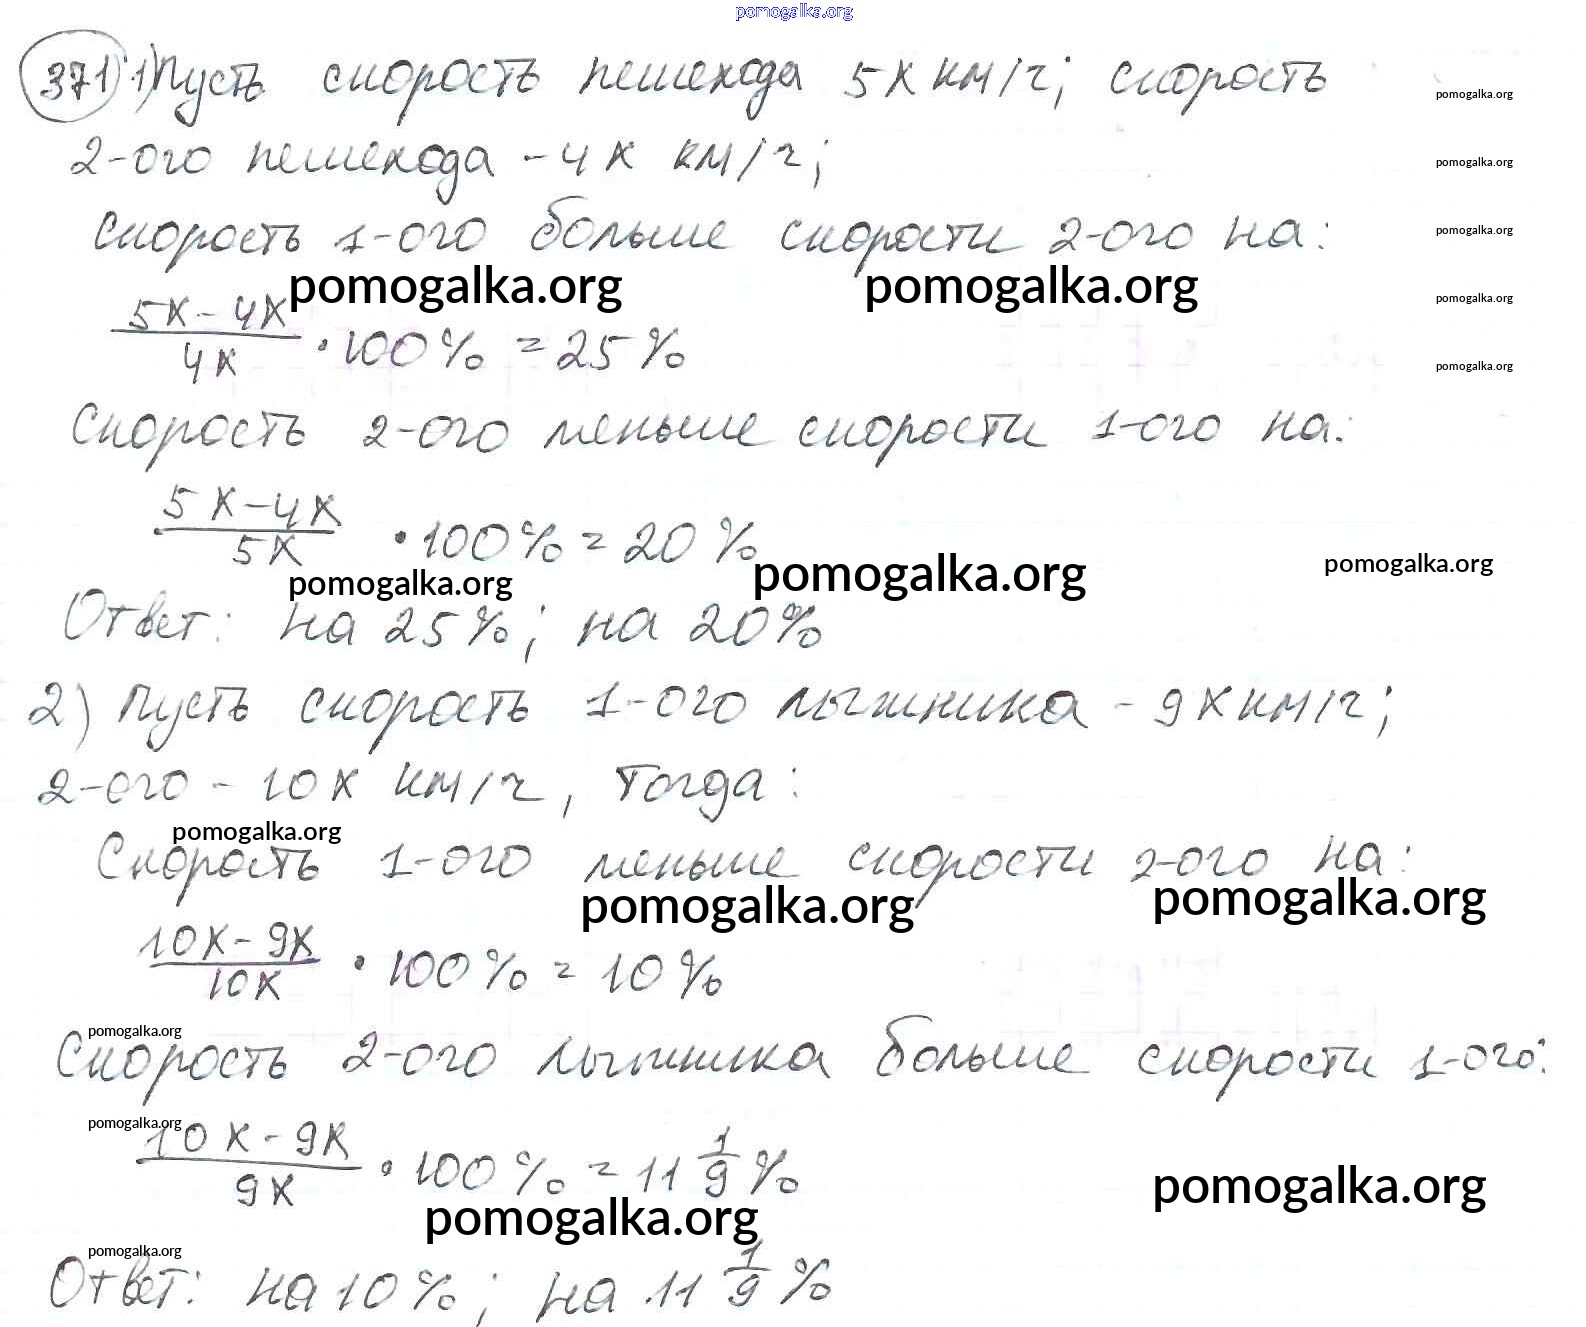 pomogalka.org
371 1) Пусть скорость пешехода 5х км/ч; скорость
pomogalka.org
2-ого пешехода - 4х км/ч;
pomogalka.org
Скорость 1-ого больше скорости 2-ого на:
pomogalka.org
pomogalka.org pomogalka.org
pomogalka.org
5х - 4х
4х · 100% = 25%
pomogalka.org
Скорость 2-ого меньше скорости 1-ого на:
5х - 4х
5х · 100% = 20%
pomogalka.org pomogalka.org pomogalka.org
Ответ: на 25%; на 20%
2) Пусть скорость 1-ого лыжника - 9х км/ч;
2-ого - 10х км/ч, тогда:
pomogalka.org
Скорость 1-ого меньше скорости 2-ого на:
pomogalka.org pomogalka.org
10х - 9х
10х · 100% = 10%
pomogalka.org
Скорость 2-ого лыжника больше скорости 1-ого:
pomogalka.org
10х - 9х
9х · 100% = 11 1/9 %
pomogalka.org
pomogalka.org
pomogalka.org
Ответ: на 10%; на 11 1/9 %